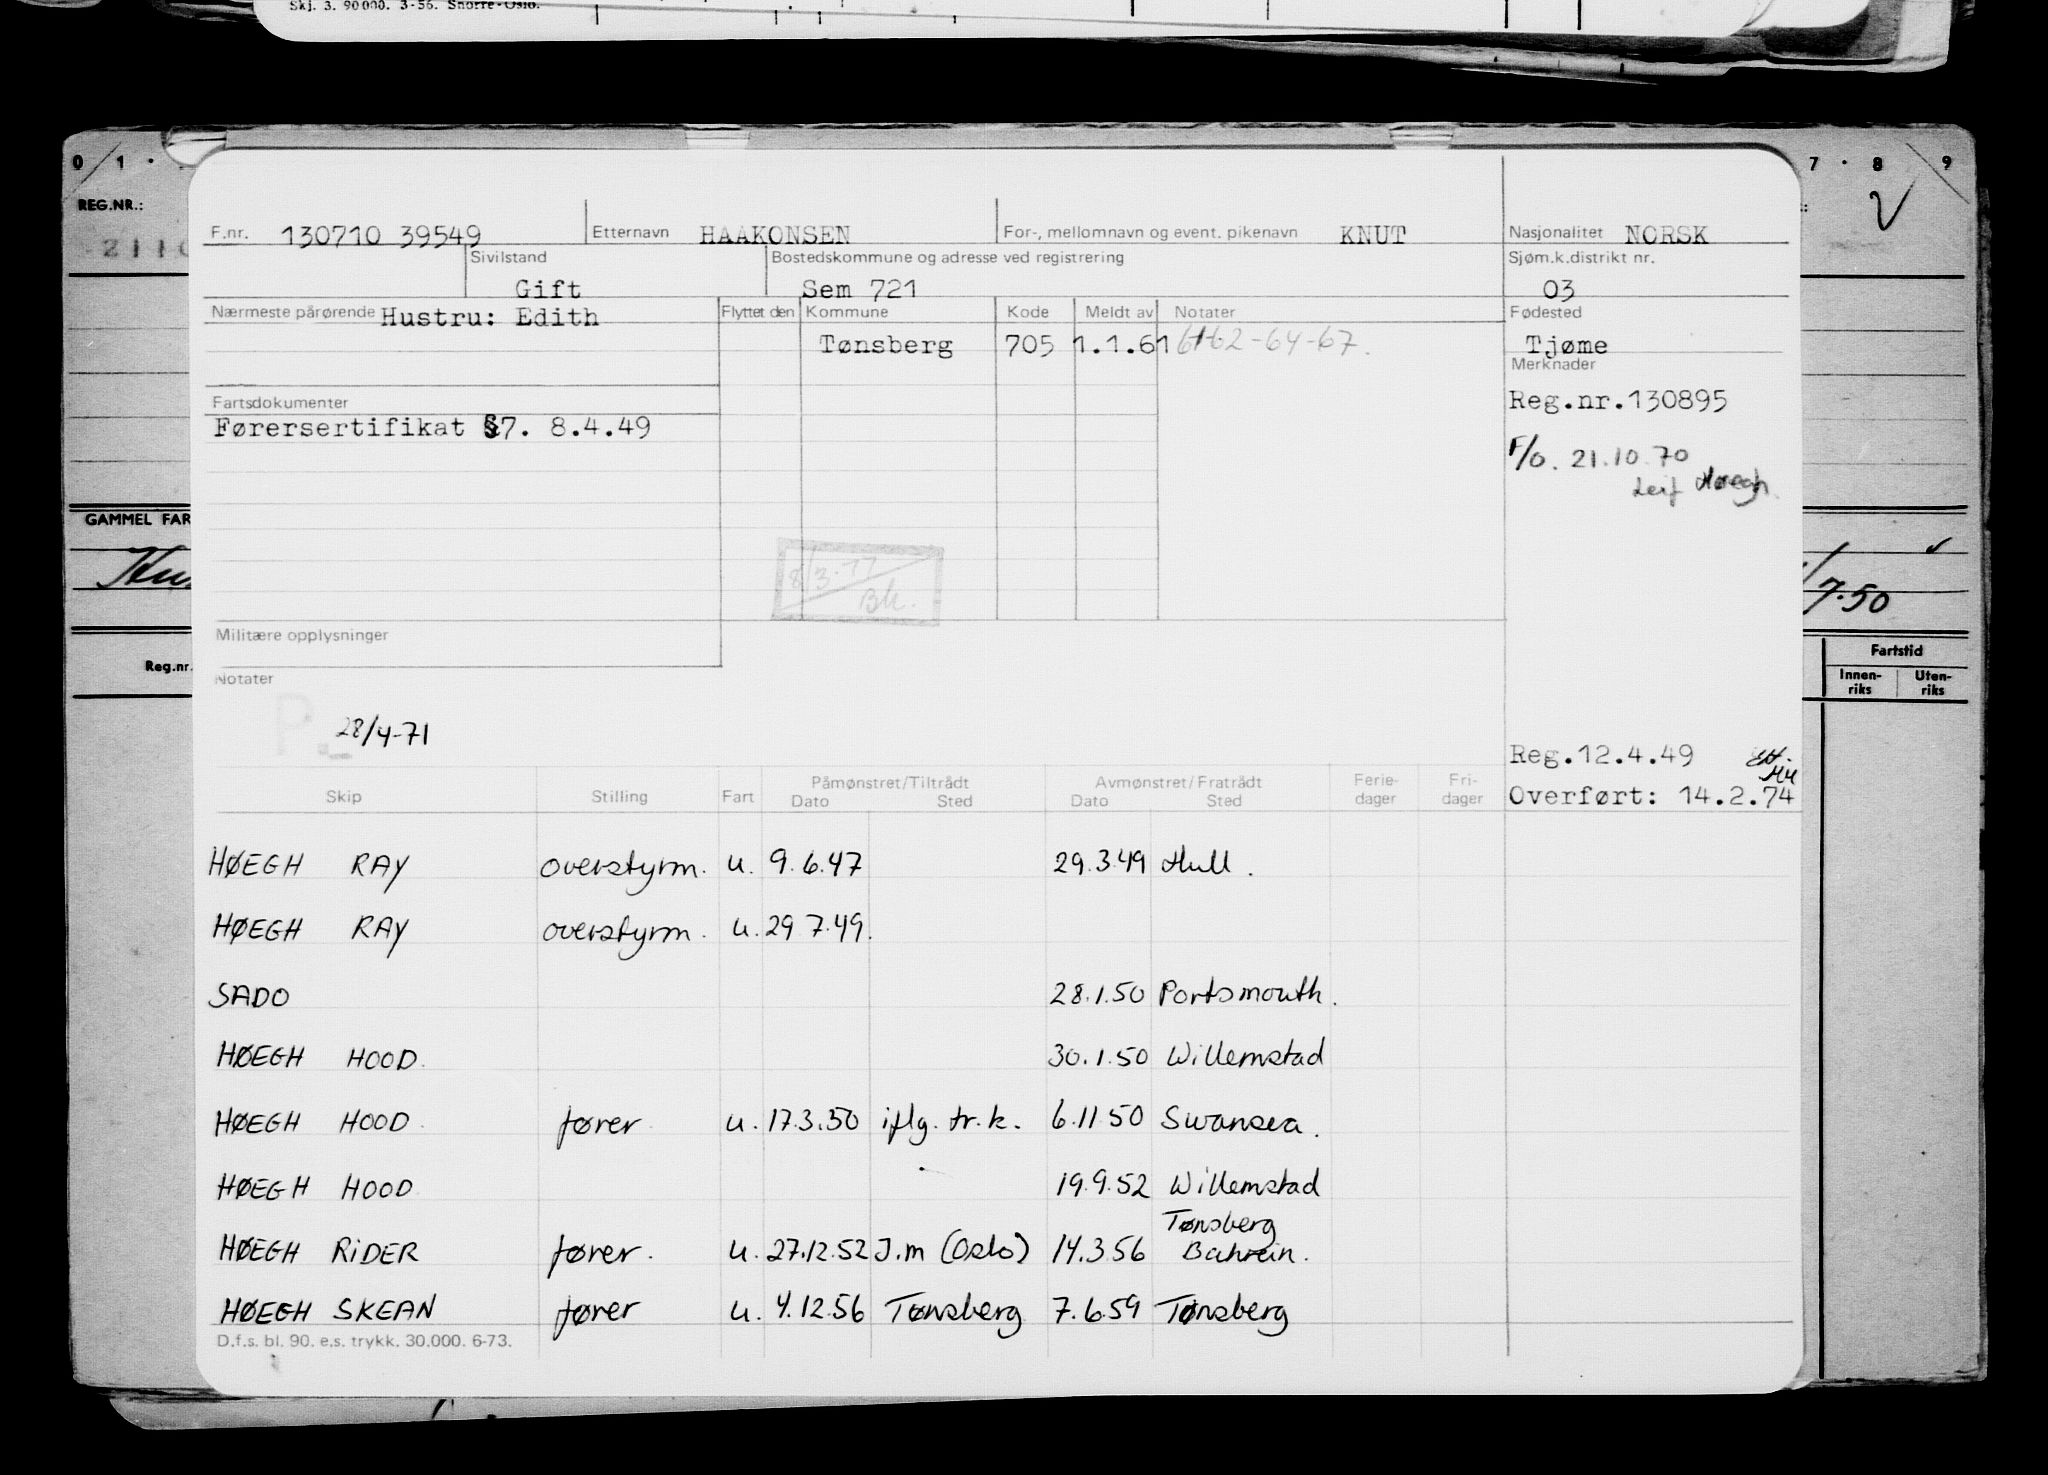 Skj. 3. 90000. 3-56. Snorre-Oslo.
0 1 . 7 . 8 9
REG.NR.:
2110
F.nr. 130710 39549 Etternavn HAAKONSEN For-, mellomnavn og event. pikenavn KNUT Nasjonalitet NORSK
Sivilstand Bostedskommune og adresse ved registrering Sjøm.k.distrikt nr.
Gift Sem 721 03
Nærmeste pårørende Hustru: Edith Flyttet den Kommune Kode Meldt av Notater Fødested
Tønsberg 705 1.1.61 6162-64-67. Tjøme
Merknader
Fartsdokumenter Reg.nr.130895
Førersertifikat §7. 8.4.49
F/O. 21.10.70
Leif Høegh.
GAMMEL FAR
8/3.77
Bk.
7.50
Militære opplysninger
Reg.nr. Fartstid
Innen-riks Uten-riks
Notater
P.
28/4-71
Reg.12.4.49
Overført: 14.2.74
Påmønstret/Tiltrådt Avmønstret/Fratrådt Ferie- Fri-
Skip Stilling Fart Dato Sted Dato Sted dager dager
HØEGH RAY overstyrm. u. 9.6.47 29.3.49 Hull.
HØEGH RAY overstyrm. u. 29 7.49.
SADO 28.1.50 Portsmouth.
HØEGH HOOD. 30.1.50 Willemstad
HØEGH HOOD. fører u. 17.3.50 iflg. tr.k. 6.11 50 Swansea.
HØEGH HOOD 19.9.52 Willemstad
Tønsberg
HØEGH RIDER fører. u. 27.12.52 J.m (Oslo) 14.3.56 Bahrein.
HØEGH SKEAN fører u. 4.12.56 Tønsberg 7.6.59 Tønsberg
D.f.s. bl. 90. e.s. trykk. 30.000. 6-73.